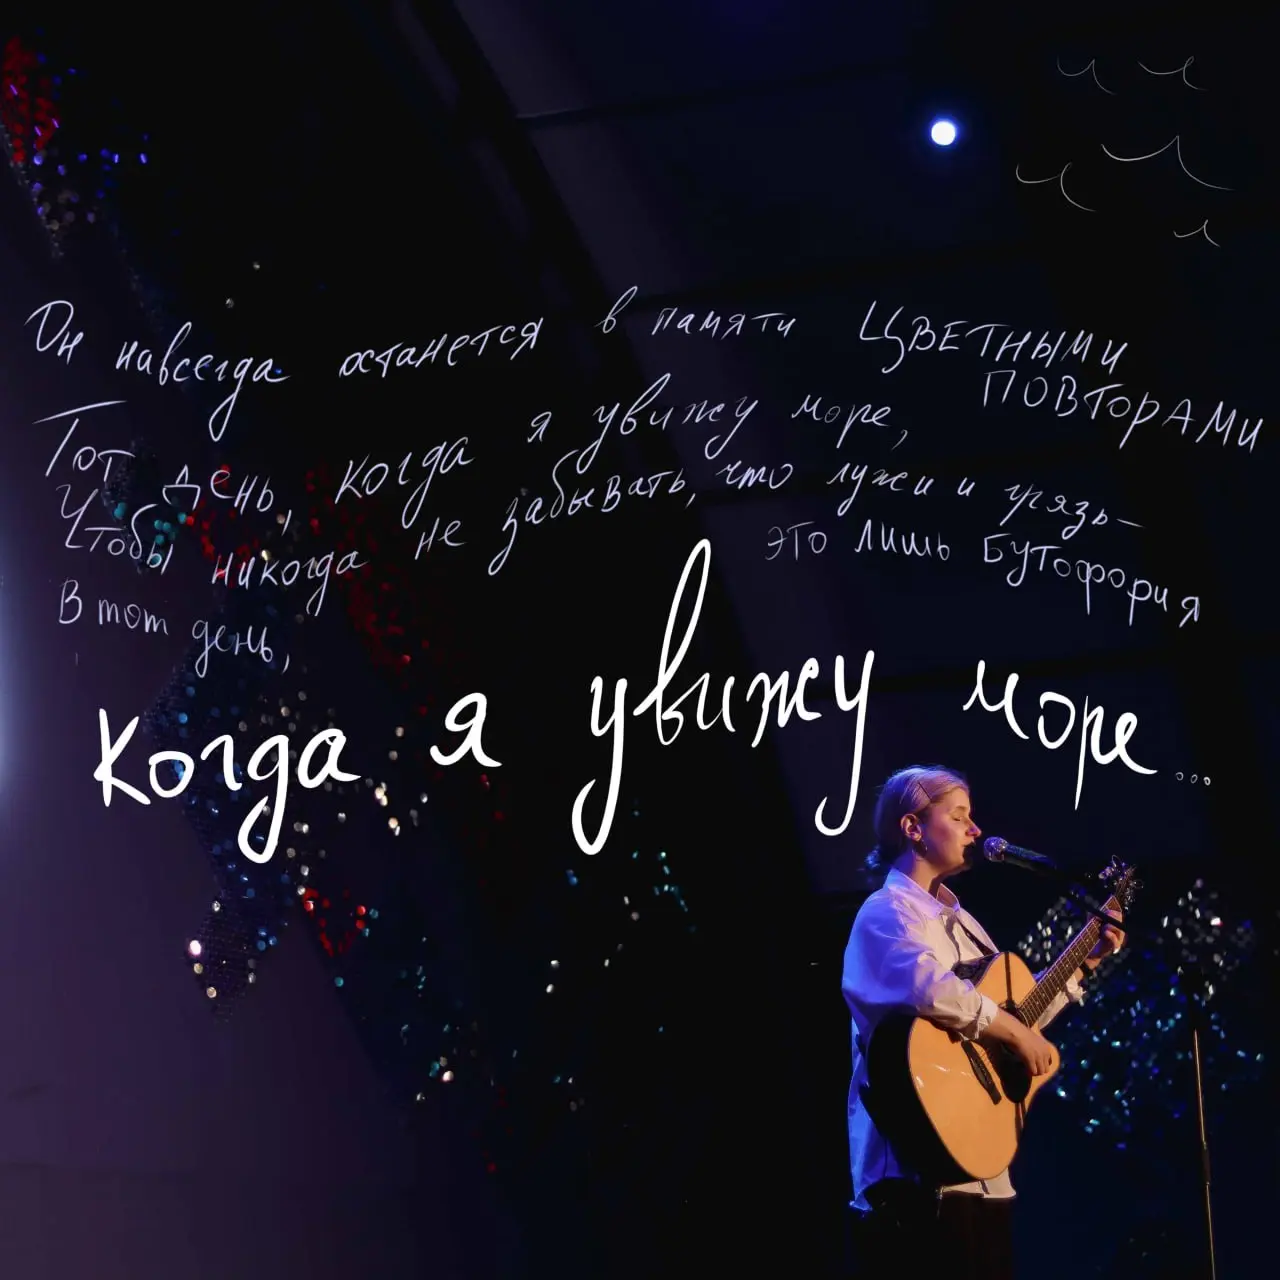 Он навсегда останется в памяти ЦВЕТНЫМИ
ПОВТОРАМИ
Тот день, когда я увижу море,
Чтобы никогда не забывать, что лужи и грязь–
это лишь БУТОФОРИЯ
В тот день,
Когда я увижу море...